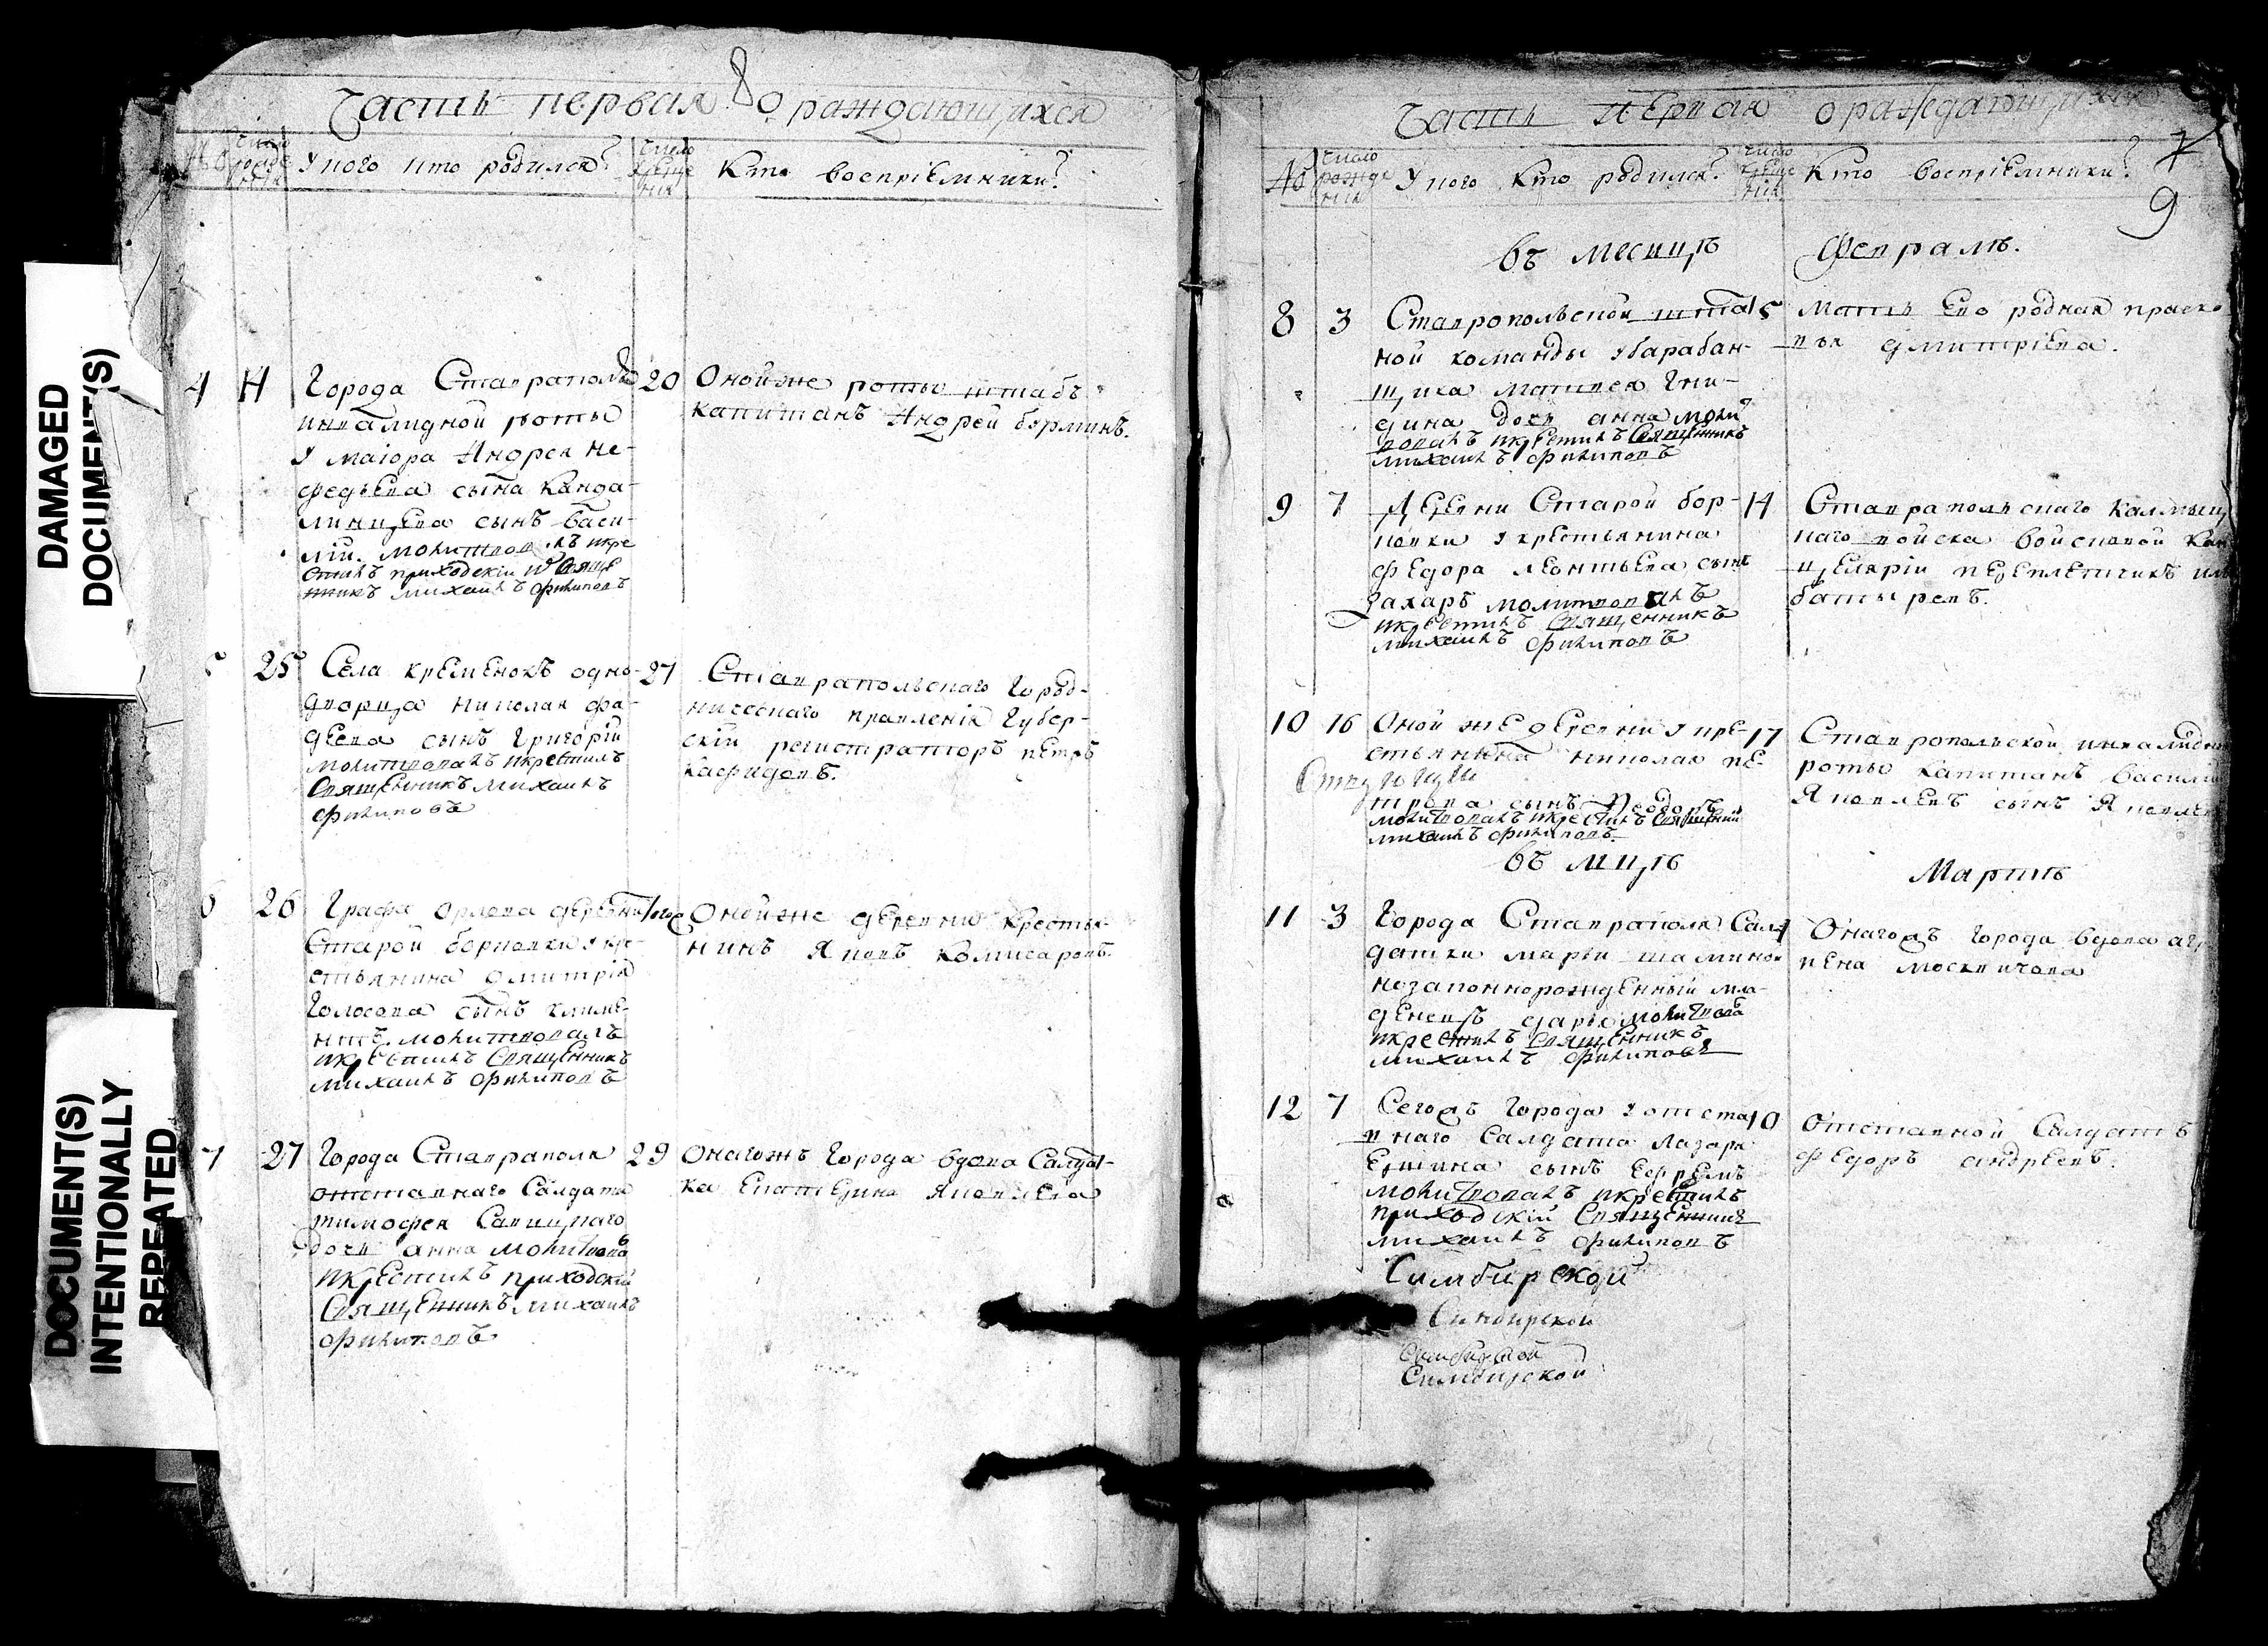 DAMAGED
DOCUMENT(S)
DOCUMENT(S)
INTENTIONALLY
REPEATED
8
Часть первая о раждающихся
№ число рожде нія У ково кто родился? число креще нія Кто воспріемники?
4 14 Города Ставраполя 20
инвалидной роты
у маіора Андрея Не-
федьева сына Канда-
линцева сынъ Васи-
лій. молитвовалъ икре
стилъ приходскій Свяще
нникъ Михаилъ Филиповъ
Онойже роты штабъ
капитанъ Андрей Бурминъ.
5 25 Села Кремёнокъ одно- 27
дворца Николая Фа-
деева сынъ Григорій
молитвовалъ икрестилъ
Священникъ Михаилъ
Филиповъ
Ставрапольскаго Город-
ническаго правленія Губер-
скій регистраторъ Петръ
6 26 Графа Орлова деревни тогоже
Старой Борковки у кре-
стьянина Дмитрія
Голосова сынъ Климе-
нтъ. молитвовалъ
икрестилъ Священникъ
Михаилъ Филиповъ
Онойже деревни крестья-
нинъ Яковъ Комисаровъ.
7 27 Города Ставраполя 29
отставнаго Салдата
Тимофея
дочь Анна молитвова
икрестилъ приходскій
Священникъ Михаилъ
Филиповъ
Онагожъ Города вдова Салдат-
ка Екатерина Яковлева
Часть первая о раждающихся
7
9
№ число рожде нія У ково кто родился? число креще нія Кто воспріемники?
въ месицѣ Февралѣ.
8 3 Ставропольской штат 5
ной команды у барабан-
щика Матвея Гни-
дина дочь Анна моли
вовалъ икрестилъ Священникъ
Михаилъ Филиповъ
Мать Ево родная Праско
вья Дмитріева.
9 7 Деревни Старой Бор- 14
ковки у крестьянина
Федора Леонтьева сынъ
Захаръ молитвовалъ
икрестилъ Священникъ
Михаилъ Филиповъ
Ставрапольскаго Калмыц
каго войска войсковой Кан
целяріи переплетчикъ
Батыревъ.
10 16 Оной же деревни у кре- 17
стьянина Николая Пе-
трова сынъ Феодоръ
молитвовалъ икрестилъ Священник
Михаилъ Филиповъ.
Ставропольской инвалидной
роты Капитанъ Василій
Яковлевъ сынъ Яковлев
въ мцѣ Мартѣ
11 3 Города Ставраполя Сал 4
датки Марьи Шаминой
незаконнорожденный мла-
денецъ Дарья молитвова
икрестилъ Священникъ
Михаилъ Филиповъ
Онагожъ города вдова Агр
пена Москвичова
12 7 Сегожъ Города у отста 10
внаго Салдата Лазаря
Ершина сынъ Ефремъ
молитвовалъ икрестилъ
приходскій Священникъ
Михаилъ Филиповъ
Отставной Салдатъ
Федоръ Андреевъ.
Симбирской
Синбирской
Симбирской